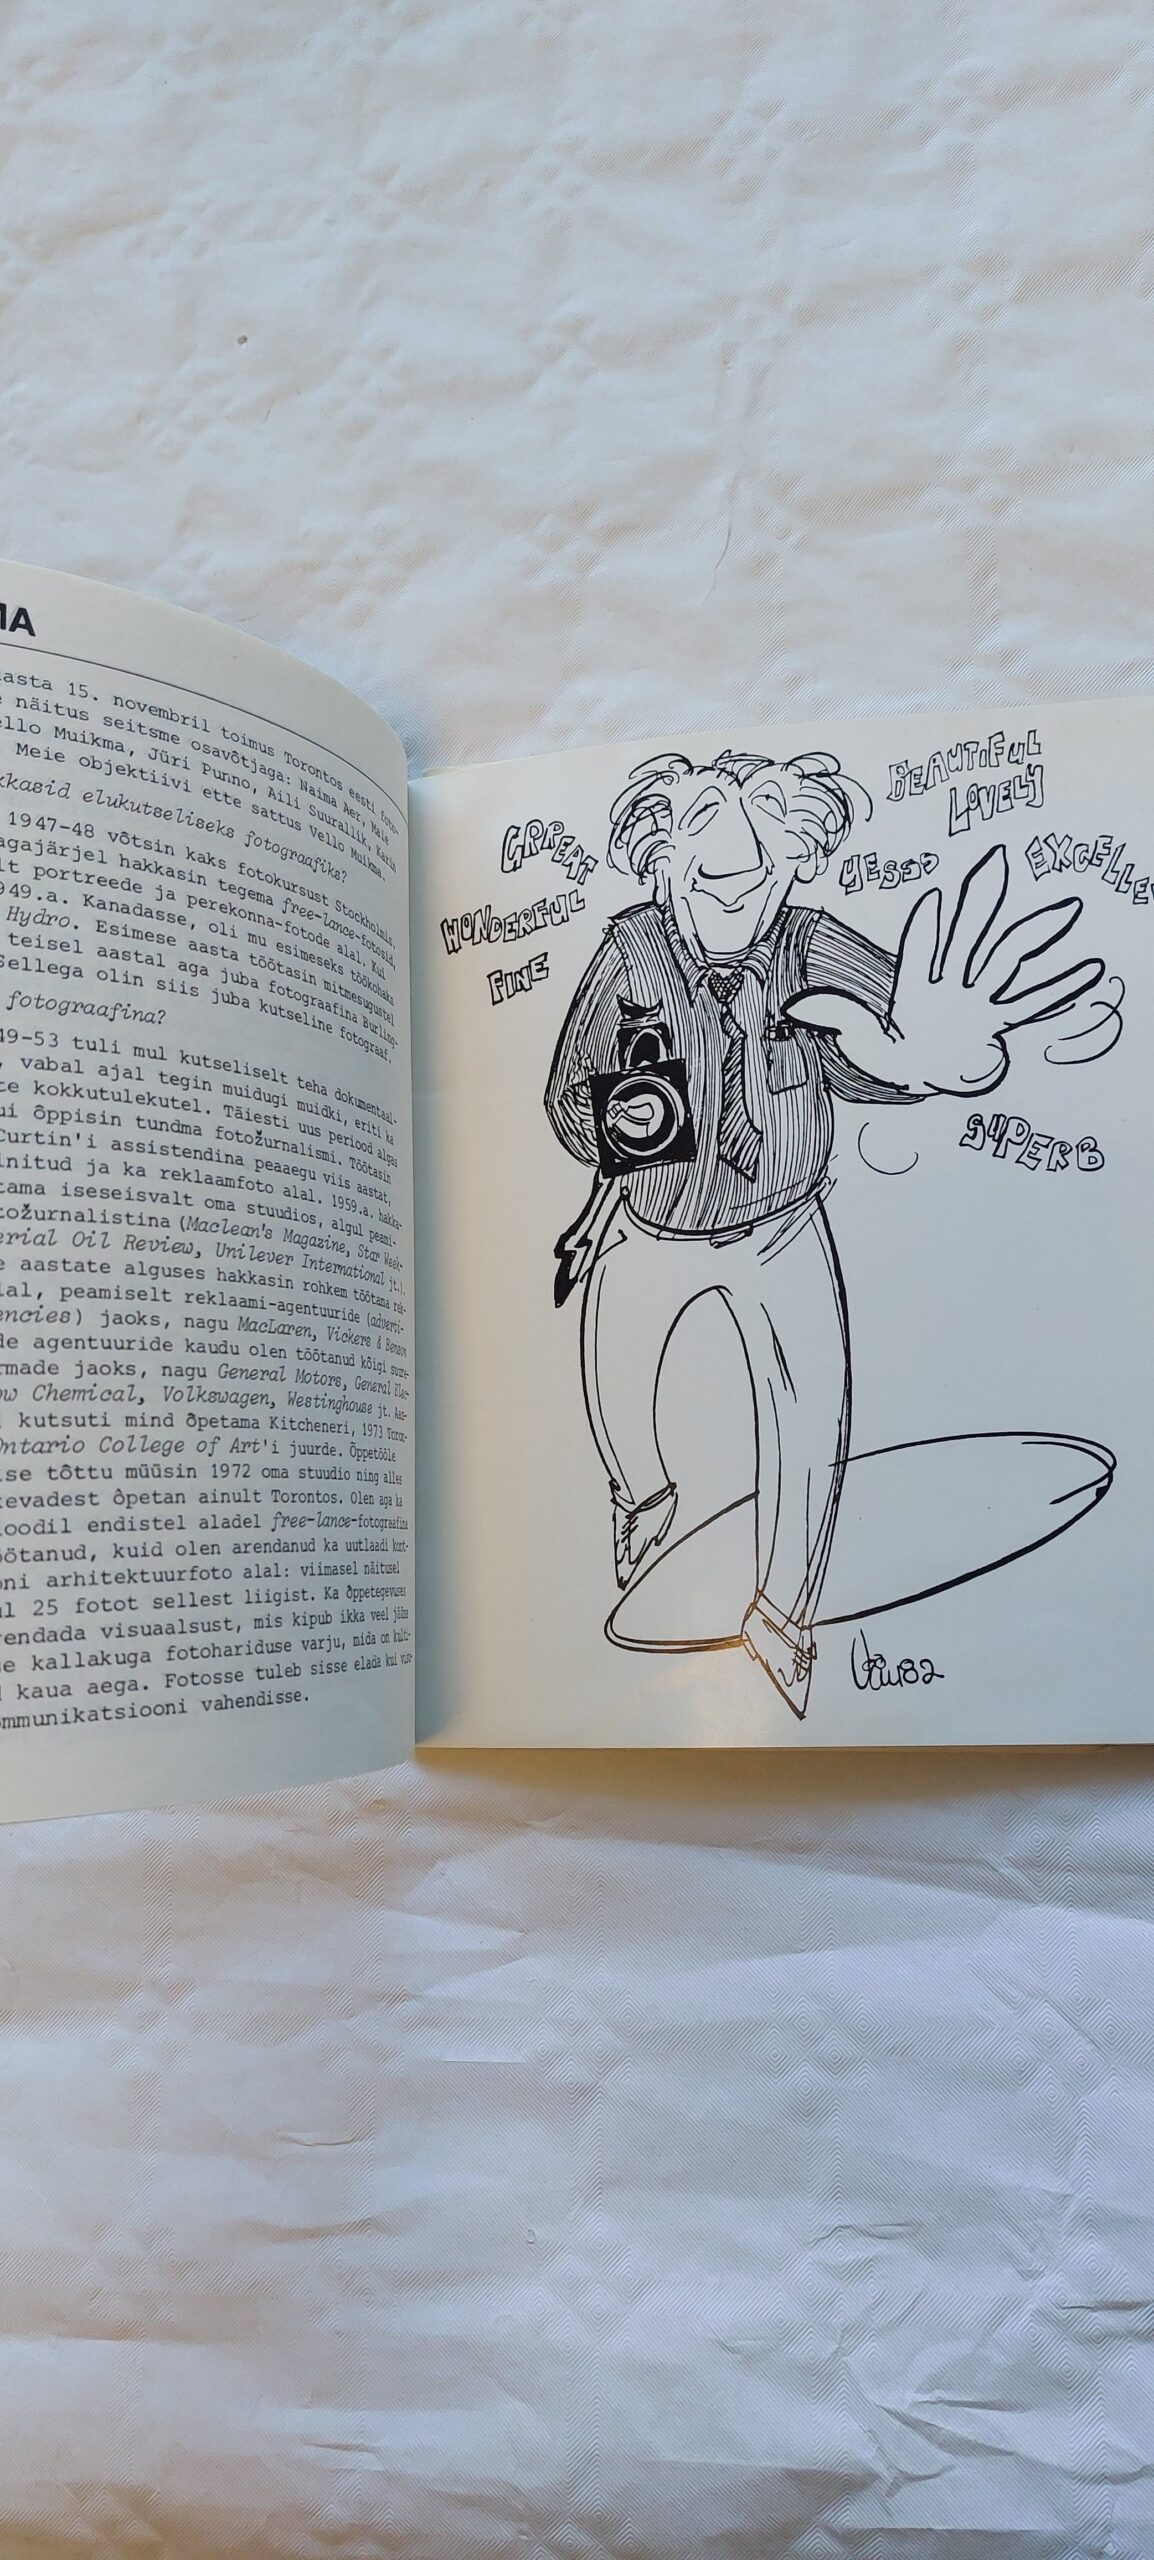 MA
asta 15. novembril toimus Torontos eesti foto-
näitus seitsme osavôtjaga: Naima Aer, Maie
ello Muikma, Jüri Punno, Aili Suurallik, Katin
Meie objektiivi ette sattus Vello Muikma.
kkasid elukutseliseks fotograafiks?
1947-48 vôtsin kaks fotokursust Stockholmis.
agajärjel hakkasin tegema free-lance-fotosid,
lt portreede ja perekonna-fotode alal. Kui
949.a. Kanadasse, oli mu esimeseks töökohaks
Hydro. Esimese aasta töötasin mitmesugustel
teisel aastal aga juba fotograafina Burling-
Sellega olin siis juba kutseline fotograaf.
fotograafina?
49-53 tuli mul kutseliselt teha dokumentaal-
, vabal ajal tegin muidugi muidki, eriti ka
te kokkutulekutel. Täiesti uus periood algas
ui ôppisin tundma fotožurnalismi. Töötasin
Curtin'i assistendina peaaegu viis aastat,
initud ja ka reklaamfoto alal. 1959.a. hakka-
tama iseseisvalt oma stuudios, algul peami-
tožurnalistina (Maclean's Magazine, Star Week-
erial Oil Review, Unilever International jt.).
e aastate alguses hakkasin rohkem töötama rek-
lal, peamiselt reklaami-agentuuride (adverti-
encies) jaoks, nagu MacLaren, Vickers & Benson
de agentuuride kaudu olen töötanud kôigi suure-
rmade jaoks, nagu General Motors, General Elec-
ow Chemical, Volkswagen, Westinghouse jt. Aas-
kutsuti mind ôpetama Kitcheneri, 1973 Toron-
Ontario College of Art'i juurde. Ôppetööle
ise tôttu müüsin 1972 oma stuudio ning alles
kevadest ôpetan ainult Torontos. Olen aga ka
loodil endistel aladel free-lance-fotograafina
öötanud, kuid olen arendanud ka uutlaadi kont-
oni arhitektuurfoto alal: viimasel näitusel
ul 25 fotot sellest liigist. Ka ôppetegevuses
rendada visuaalsust, mis kipub ikka veel jääma
se kallakuga fotohariduse varju, mida on kulti-
d kaua aega. Fotosse tuleb sisse elada kui visu-
ommunikatsiooni vahendisse.
BEAUTIFUL
LOVELY
GRREAT
YESSS
EXCELLE
WONDERFUL
FINE
SUPERB
82